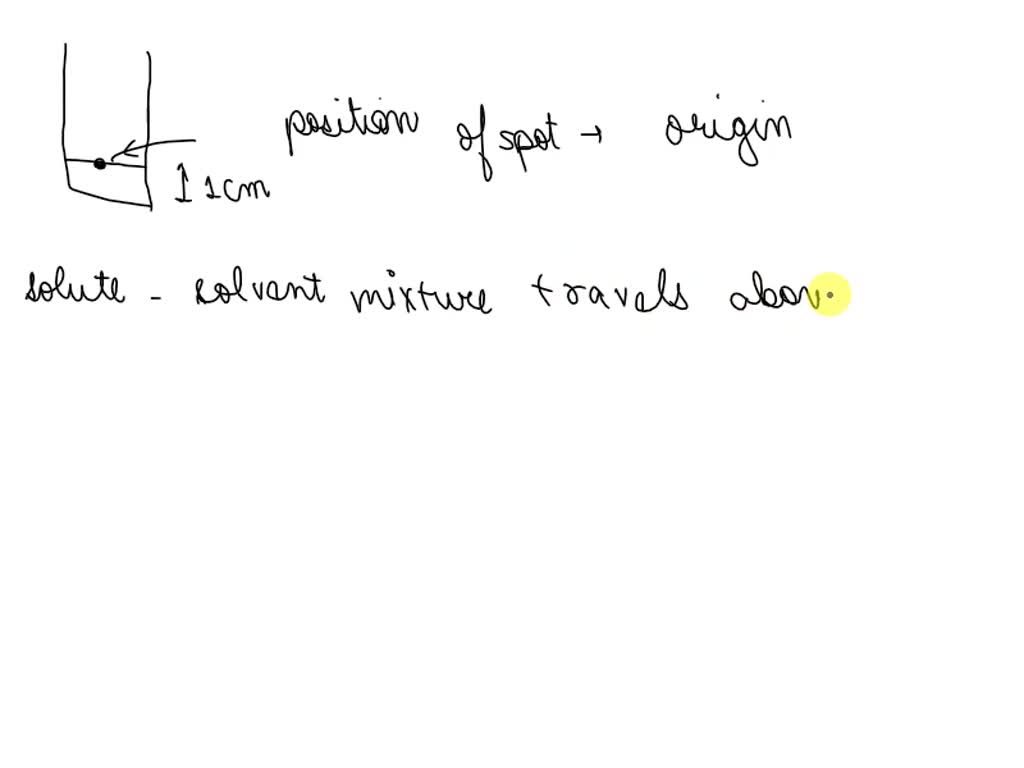 position of spot → origin
1cm
solute - solvant mixture travels abov